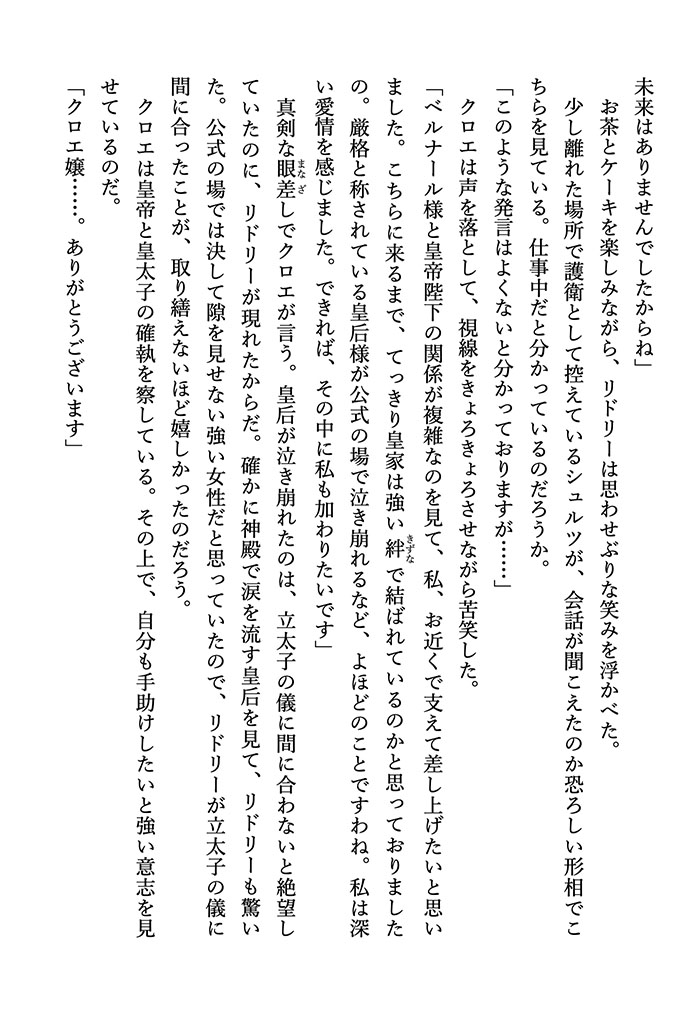 未来はありませんでしたからね」
　お茶とケーキを楽しみながら、リドリーは思わせぶりな笑みを浮かべた。
　少し離れた場所で護衛として控えているシュルツが、会話が聞こえたのか恐ろしい形相でこ
ちらを見ている。仕事中だと分かっているのだろうか。
「このような発言はよくないと分かっておりますが……」
　クロエは声を落として、視線をきょろきょろさせながら苦笑した。
「ベルナール様と皇帝陛下の関係が複雑なのを見て、私、お近くで支えて差し上げたいと思い
ました。こちらに来るまで、てっきり皇家は強い絆きずなで結ばれているのかと思っておりました
の。厳格と称されている皇后様が公式の場で泣き崩れるなど、よほどのことですわね。私は深
い愛情を感じました。できれば、その中に私も加わりたいです」
　真剣な眼差まなざしでクロエが言う。皇后が泣き崩れたのは、立太子の儀に間に合わないと絶望し
ていたのに、リドリーが現れたからだ。確かに神殿で涙を流す皇后を見て、リドリーも驚い
た。公式の場では決して隙を見せない強い女性だと思っていたので、リドリーが立太子の儀に
間に合ったことが、取り繕えないほど嬉しかったのだろう。
　クロエは皇帝と皇太子の確執を察している。その上で、自分も手助けしたいと強い意志を見
せているのだ。
「クロエ嬢……。ありがとうございます」